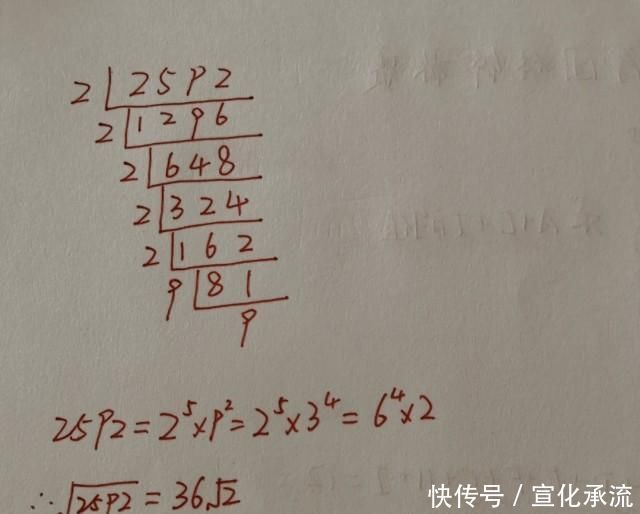 2 2592
2 1296
2 648
2 324
2 162
9 81
9
2592=2⁵×9²=2⁵×3⁴=6⁴×2
∴√2592=36√2
快传号/宣化承流